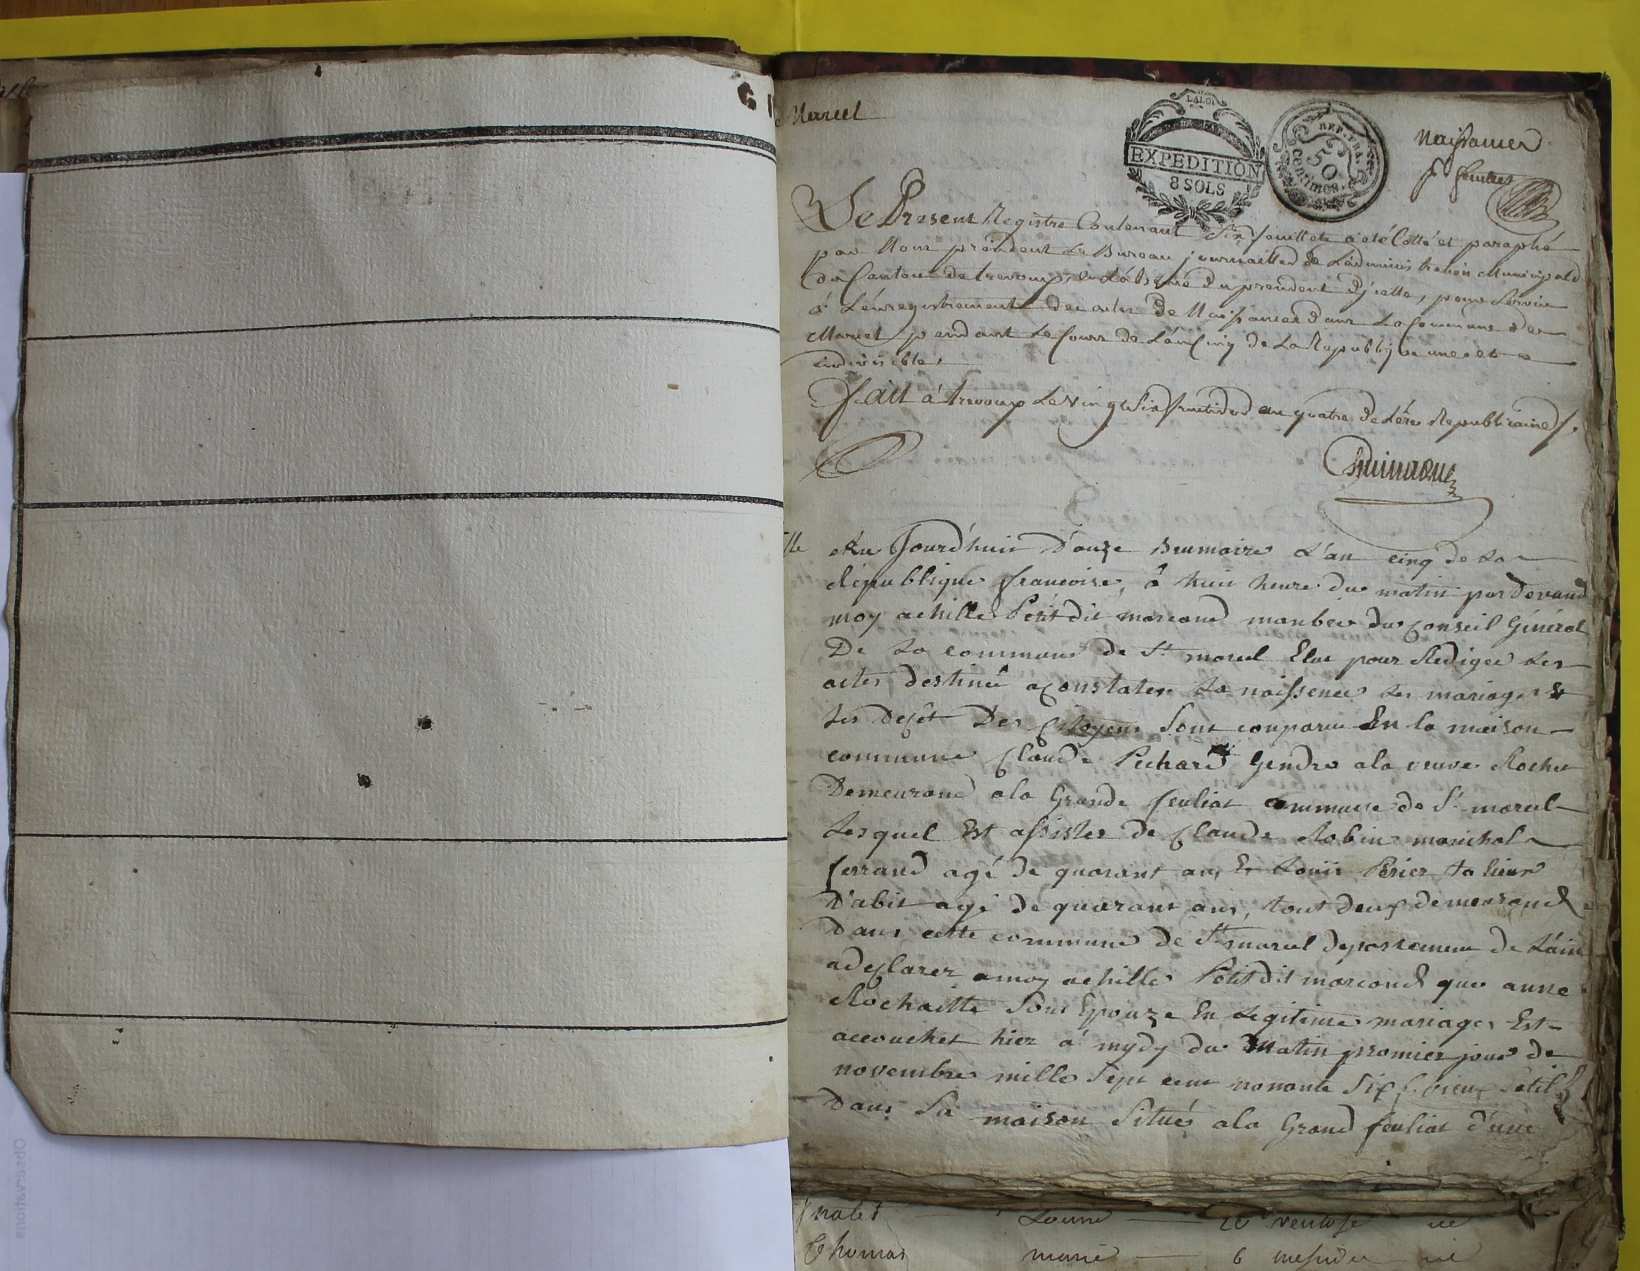 Marcel
LA LOI
EXPEDITION
8 SOLS
REP. FRA.
50
centimes
Naissances
6 feuillets
Le Present Registre Contenant Six feuillets a été Cotté et paraphé
par Nous président du Bureau journaillier de Ladministration Municipale
du Canton de trevoux, en Labsence du president dycelle, pour Servir
à Lenregistrement des actes de Naissances dans La Commune de
Marcel pendant Le Cours de Lan Cinq de La Republique une et
indivisible.
fait à trevoux Le vingt Six fructidor an quatre de Lére Republicaine.
Au Jourd'huit D'ouze Brumaire L'an cinq de La
république francoise, à huit heure du matin par Devand
moy achille Petit dit marcand manbre du Conseil Général
De La commune de St marcel Elue pour Rediger Les
actes destiné a Constater La naissence Les mariages &
Les Deçêt Des Citoyens Sont comparue En la maison
commune Claude Pichard Gendre a la veuve Rochet
Demeurand a la Grande feuliat commune de St marcel
Lesquel Est assister de Claude Robin marichal
ferrand agé de quarant ans Et Louis Périer talieur
D'abit agé de quarant ans, tout deux demeurand
Dans cette commune de St marcel departement de L'ain
a declarez a moy achille Petit dit marcand que anne
Rochaitte Sont Epouze En Legitime mariages Est
accouchet hier à mydy du Matin promier jour de
novembre mille Sept cent nonante Six vieux Setil
Dans Sa maison Situés a la Grand feuliat d'une
Louise 26 ventose
Thomas marie 6 messidor
Observations